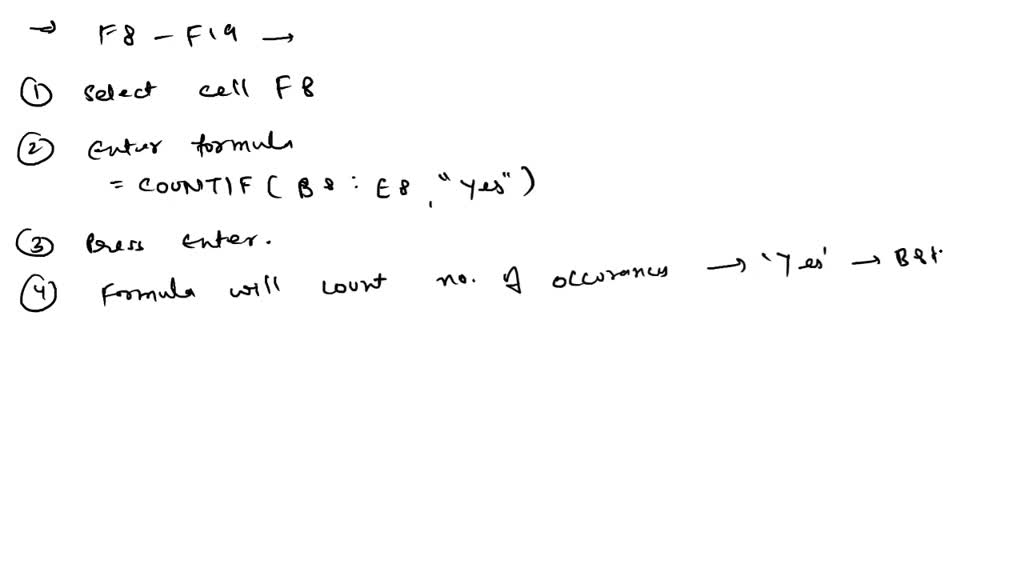 → F8 – F19 →
① Select cell F8
② Enter formula
= COUNTIF ( B8 : E8 , "Yes" )
③ Press Enter.
④ Formula will count no. of occurances → 'Yes' → B8